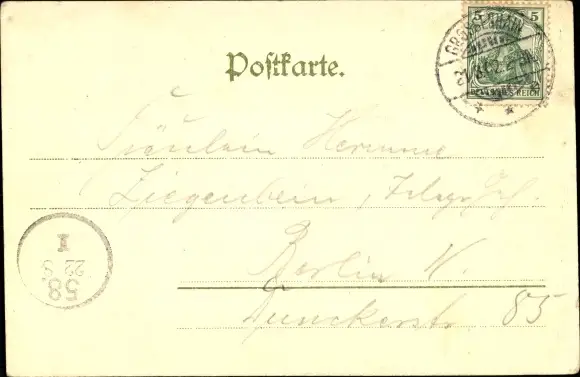 5 5
DEUTSCHES REICH
GROSSENHAIN
Postkarte.
Fräulein Hermine
Ziegenbein, Telegr.
Berlin N.
Dunckerstr. 85
58.
22 9
I